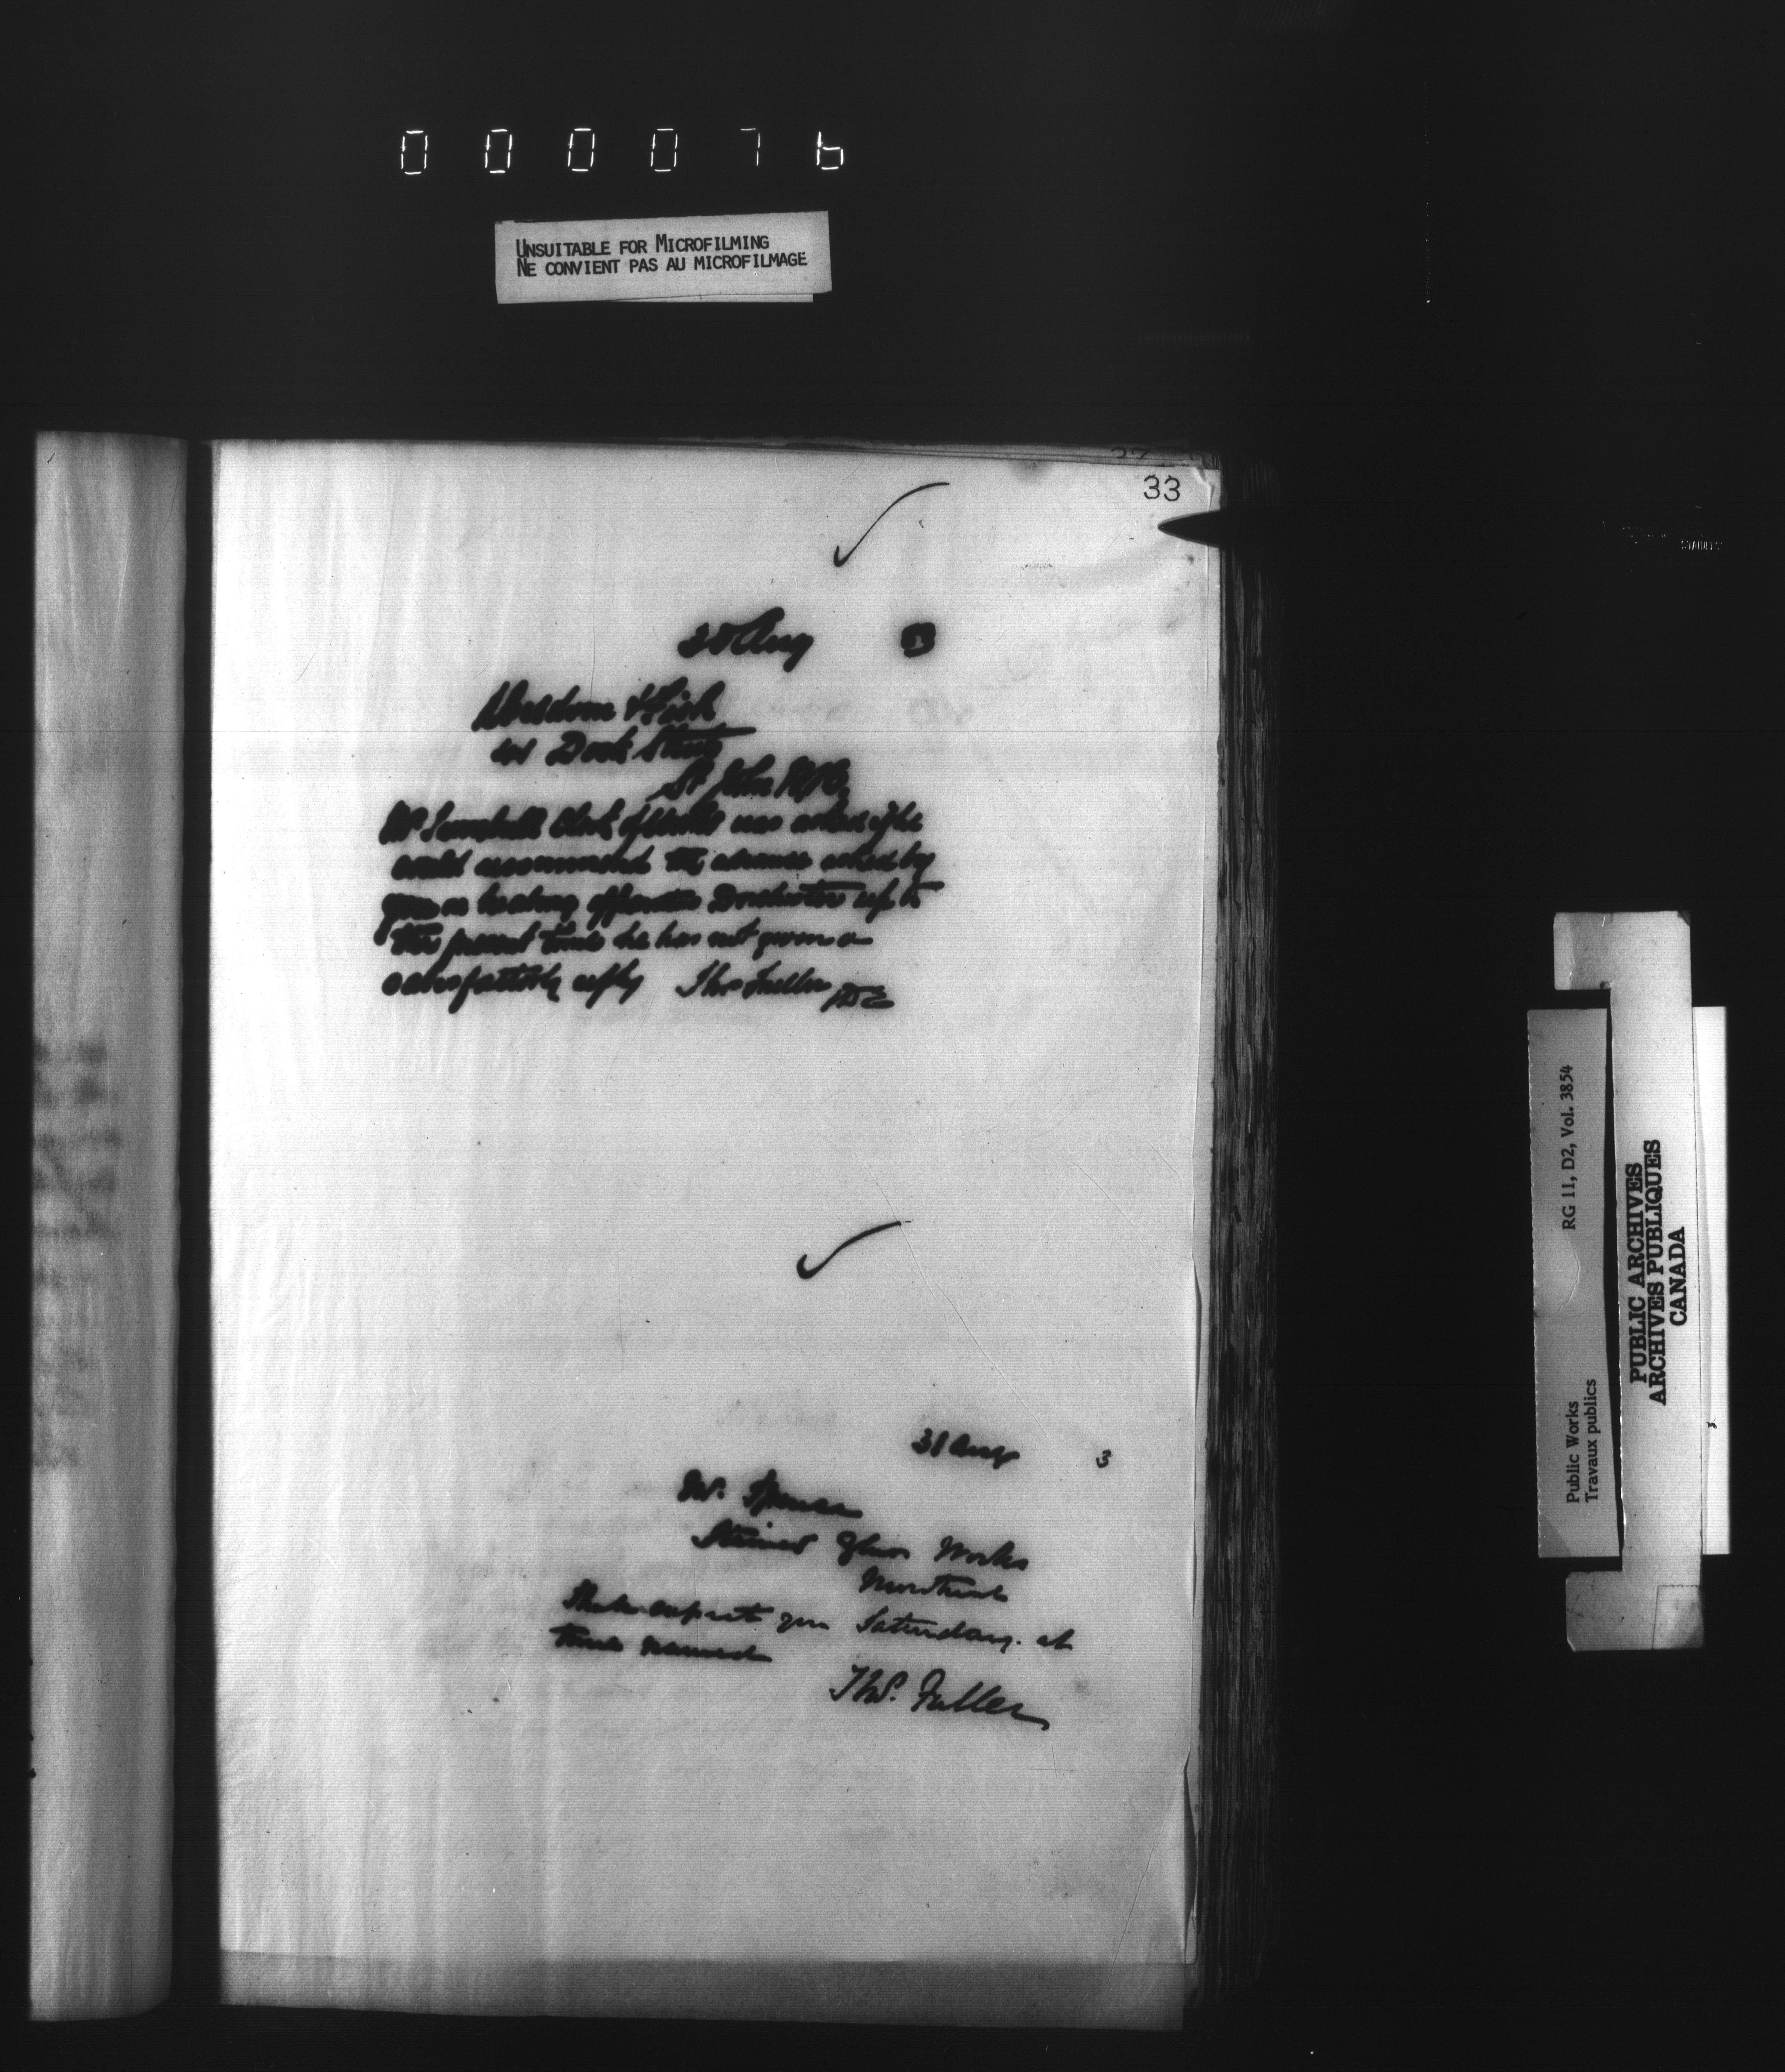 000076
UNSUITABLE FOR MICROFILMING
NE CONVIENT PAS AU MICROFILMAGE
33
Aug
& Fish
41 Dock Street
St John N.B.
Clerk of Works was asked if he
could recommend the advance asked by
you on heating apparatus Dorchester up to
the present time he has not given a
satisfactory reply Thos Fuller
31 Aug 3
W. Spence
Stained Glass Works
Montreal
Shall expect you Saturday. at
time named
Thos. Fuller
Public Works RG 11, D2, Vol. 3854
Travaux publics
PUBLIC ARCHIVES
ARCHIVES PUBLIQUES
CANADA